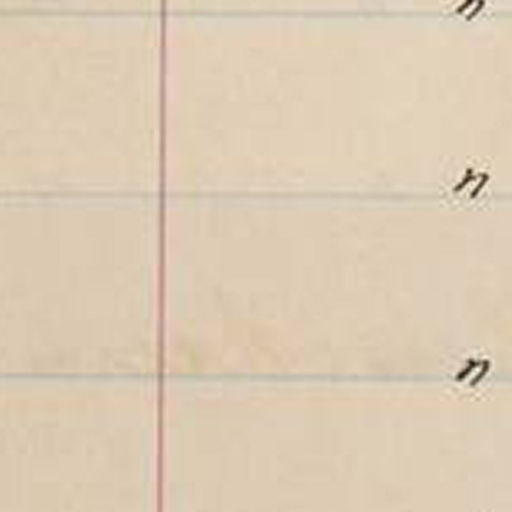 n
n
n